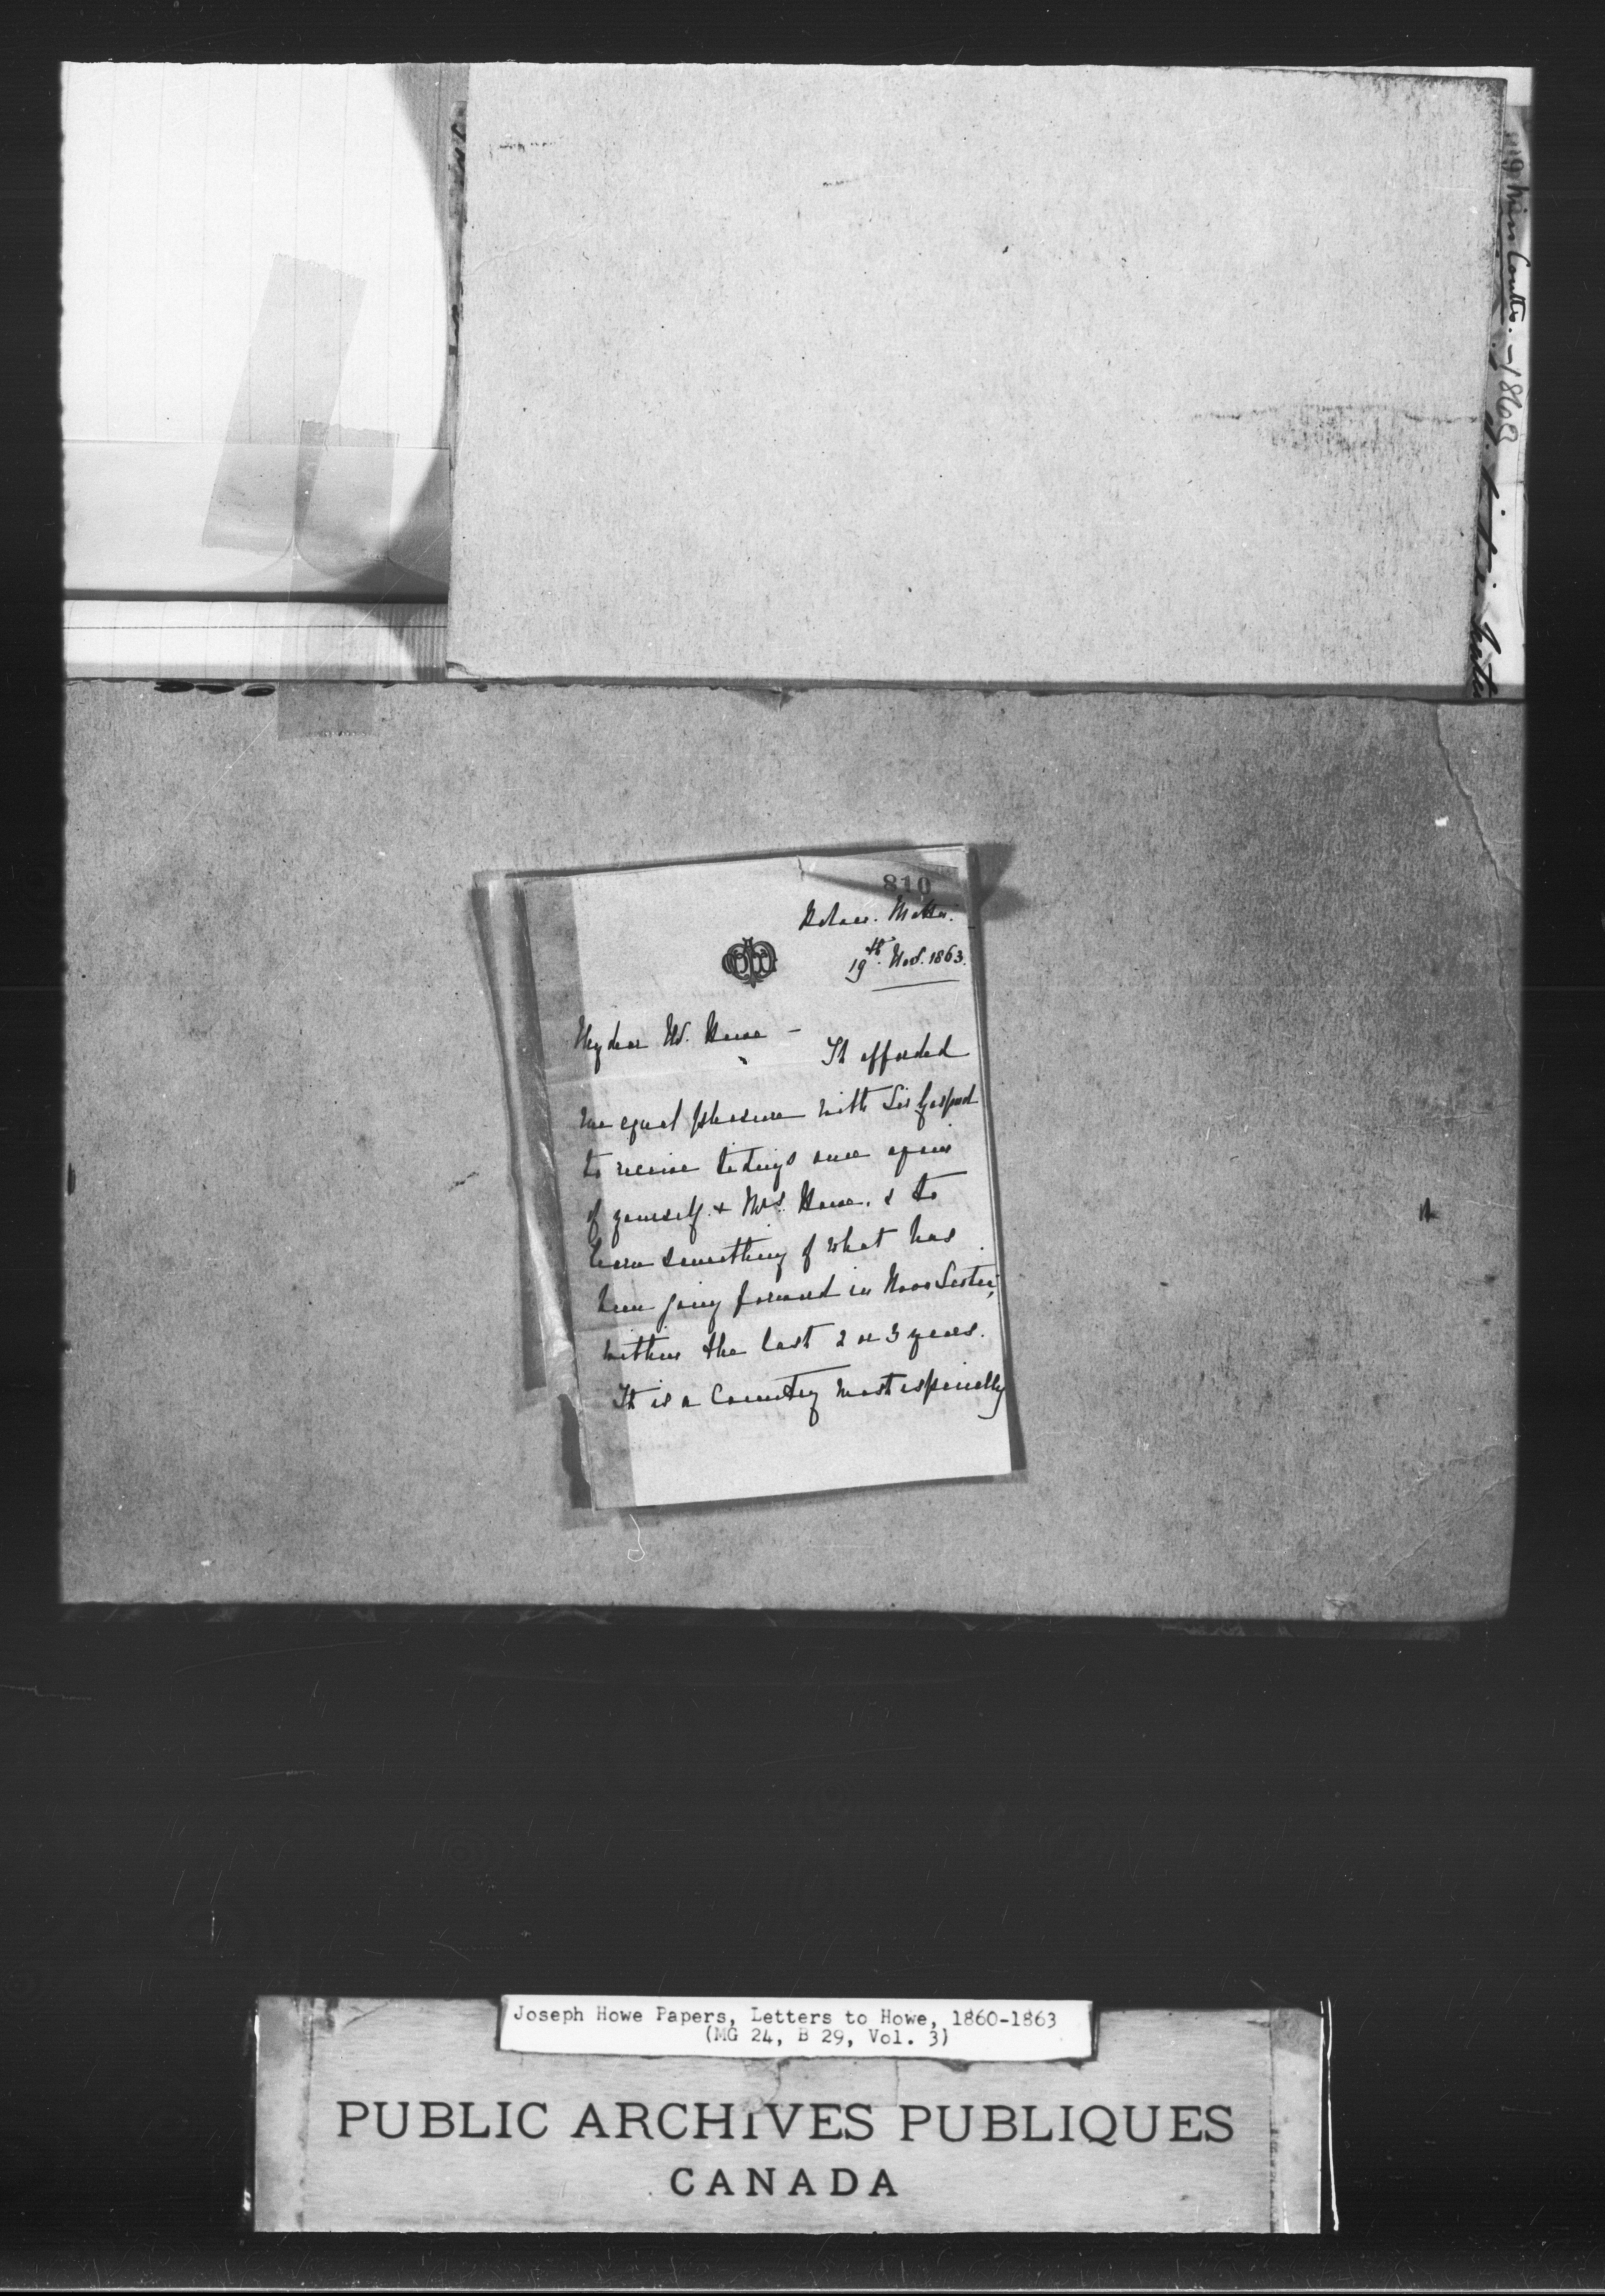 119 Miss Coutts. - 1868
810
Palace. Malta.
19th. Nov. 1863.
My dear Mr. Howe -
It afforded
me equal pleasure with Sir Gaspard
to receive tidings once again
of yourself & Mrs. Howe, & to
learn something of what has
been going forward in Nova Scotia,
within the last 2 or 3 years.
It is a Country most especially
Joseph Howe Papers, Letters to Howe, 1860-1863
(MG 24, B 29, Vol. 3)
PUBLIC ARCHIVES PUBLIQUES
CANADA